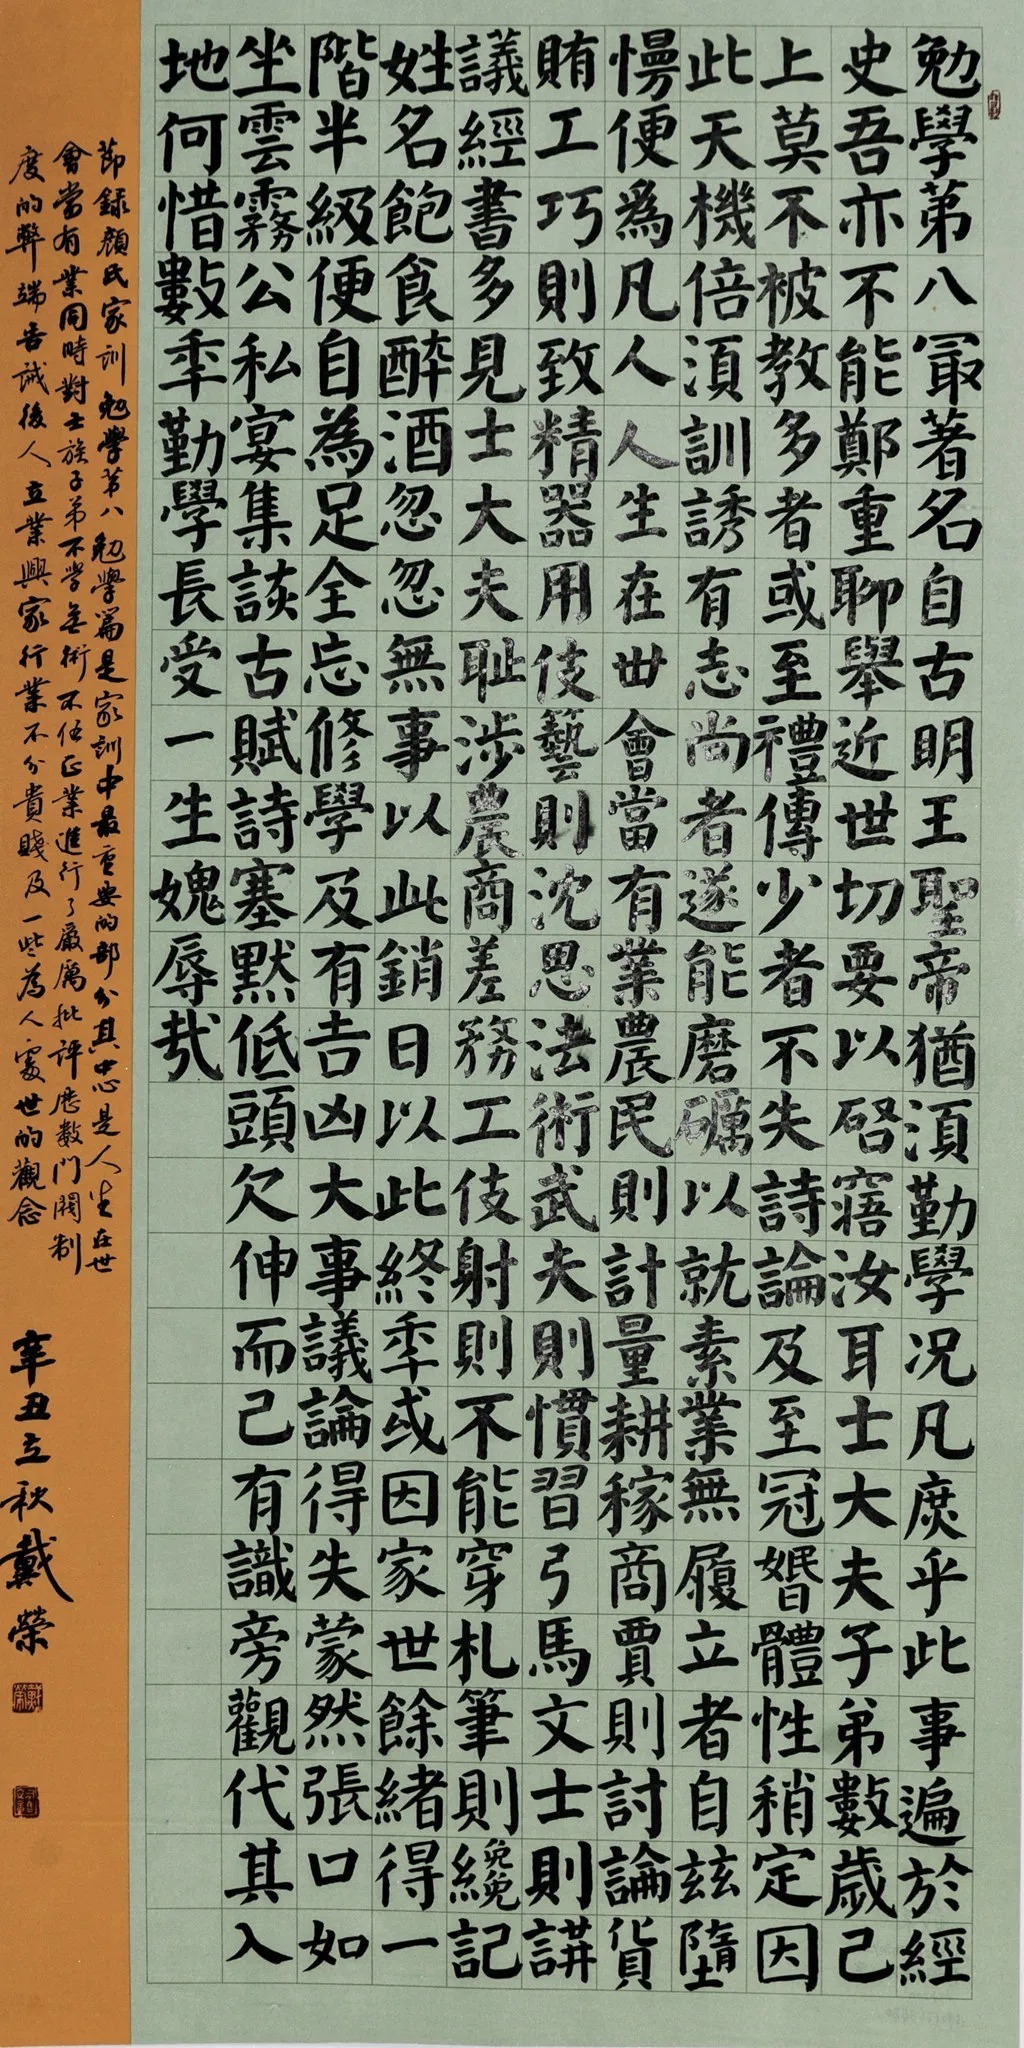 勉學第八冣著名自古明王聖帝猶湏勤學况凡庶乎此事遍於經
史吾亦不能鄭重聊舉近世切要以啓寤汝耳士大夫子弟數歲已
上莫不被教多者或至禮傳少者不失詩論及至冠婚體性稍定因
此天機倍湏訓誘有志尚者遂能磨礪以就素業無履立者自兹墮
慢便爲凡人人生在世會當有業農民則計量耕稼商賈則討論貨
賄工巧則致精器用伎藝則沈思法術武夫則慣習弓馬文士則講
議經書多見士大夫耻涉農商差務工伎射則不能穿札筆則纔記
姓名飽食醉酒忽忽無事以此銷日以此終秊或因家世餘緒得一
階半級便自為足全忘修學及有吉凶大事議論得失蒙然張口如
坐雲霧公私宴集談古賦詩塞默低頭欠伸而已有識旁觀代其入
地何惜數秊勤學長受一生媿辱㢤
節録顔氏家训勉學第八勉學篇是家训中最重要的部分其中心是人生在世
會當有業同時對士族子弟不学無術不任正業進行了嚴厲批評歷數門閥制
度的弊端告诫後人立業興家行業不分貴賤及一些為人處世的觀念
辛丑立秋戴榮